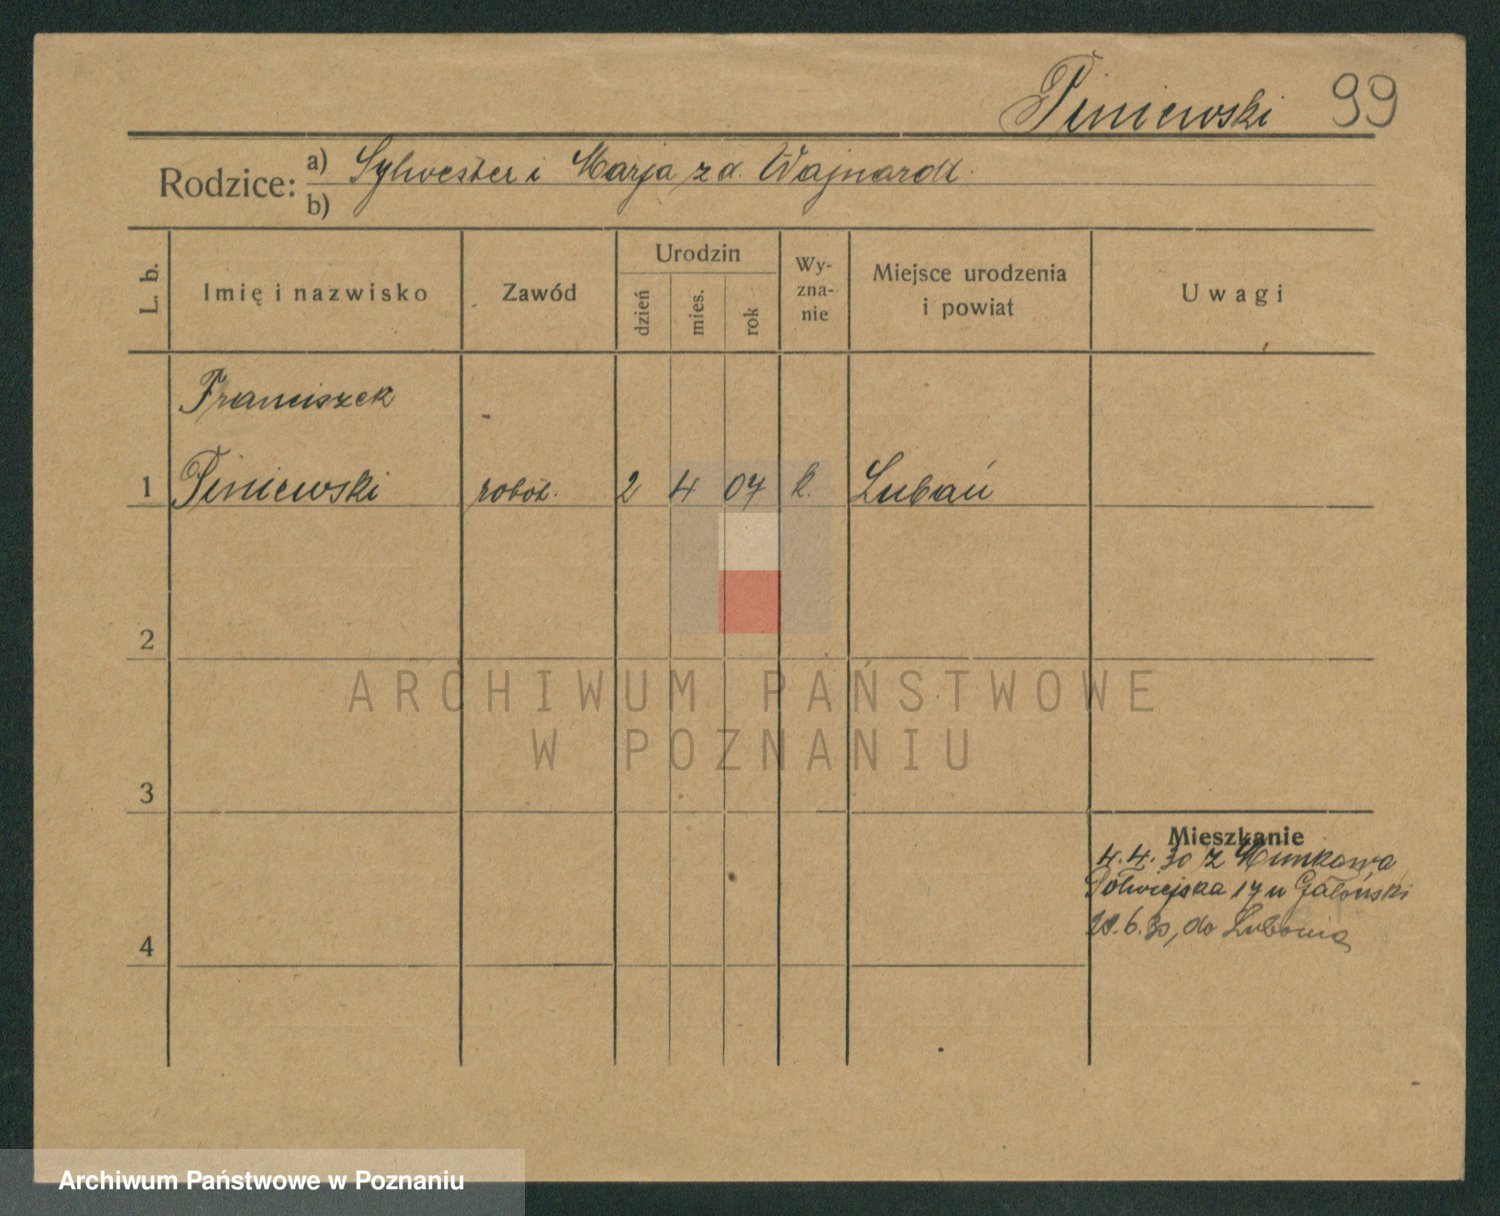 Piniewski 99
Rodzice: a) Sylwester i Marja z d. Wajnardt.
b)
L. b. Imię i nazwisko Zawód Urodzin dzień mies. rok Wy-zna-nie Miejsce urodzenia i powiat Uwagi
Franciszek
1 Piniewski robot. 2 4 07 k. Lubań
2
ARCHIWUM PAŃSTWOWE
W POZNANIU
3
Mieszkanie
4.4.30 z
Półwiejska 17 u
.6.30, do Lubonia
4
Archiwum Państwowe w Poznaniu